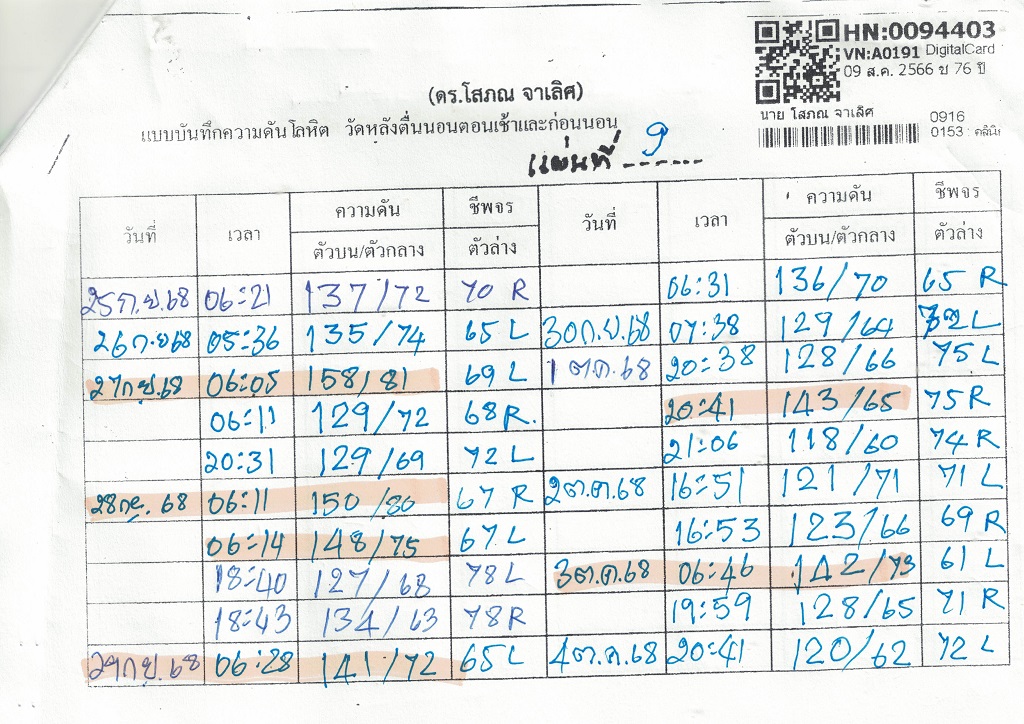 HN:0094403
VN:A0191 DigitalCard
09 ส.ค. 2566 ข 76 ปี
นาย โสภณ จาเลิศ
0916
0153 : คลินิ
(ดร.โสภณ จาเลิศ)
แบบบันทึกความดันโลหิต วัดหลังตื่นนอนตอนเช้าและก่อนนอน
แผ่นที่ 9
วันที่ เวลา ความดัน ชีพจร วันที่ เวลา ความดัน ชีพจร
ตัวบน/ตัวกลาง ตัวล่าง ตัวบน/ตัวกลาง ตัวล่าง
25 ก.ย.68 06:21 137/72 70 R 06:31 136/70 65 R
26 ก.ย 68 05:36 135/74 65 L 30 ก.ย.68 07:38 129/64 L
27 ก.ย.68 06:05 158/81 69 L 1 ต.ค.68 20:38 128/66 75 L
06:11 129/72 68 R. 20:41 143/65 75 R
20:31 129/69 72 L 21:06 118/60 74 R
28 กย. 68 06:11 150/80 67 R 2 ต.ค.68 16:51 121/71 71 L
06:14 148/75 67 L 16:53 123/66 69 R
18:40 127/68 78 L 3 ต.ค.68 06:46 142/73 61 L
18:43 134/63 78 R 19:59 128/65 71 R
29 ก.ย. 68 06:28 141/72 65 L 4 ต.ค.68 20:41 120/62 72 L